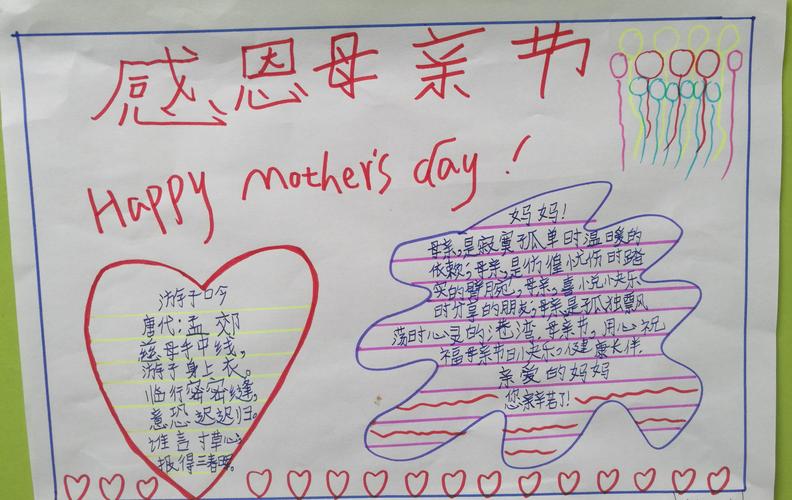 感恩母亲节
Happy mother's day!
游子吟
唐代:孟郊
慈母手中线,
游子身上衣。
临行密密缝,
意恐迟迟归。
谁言寸草心,
报得三春晖。
妈妈!
母亲,是寂寞孤单时温暖的
依赖,母亲,是彷徨忧伤时踏
实的臂腕!,母亲,喜悦快乐
时分享的朋友,母亲是孤独飘
荡时心灵的港湾,母亲节,用心祝
福母亲节日快乐,健康长伴.
亲爱的妈妈
您辛苦了!